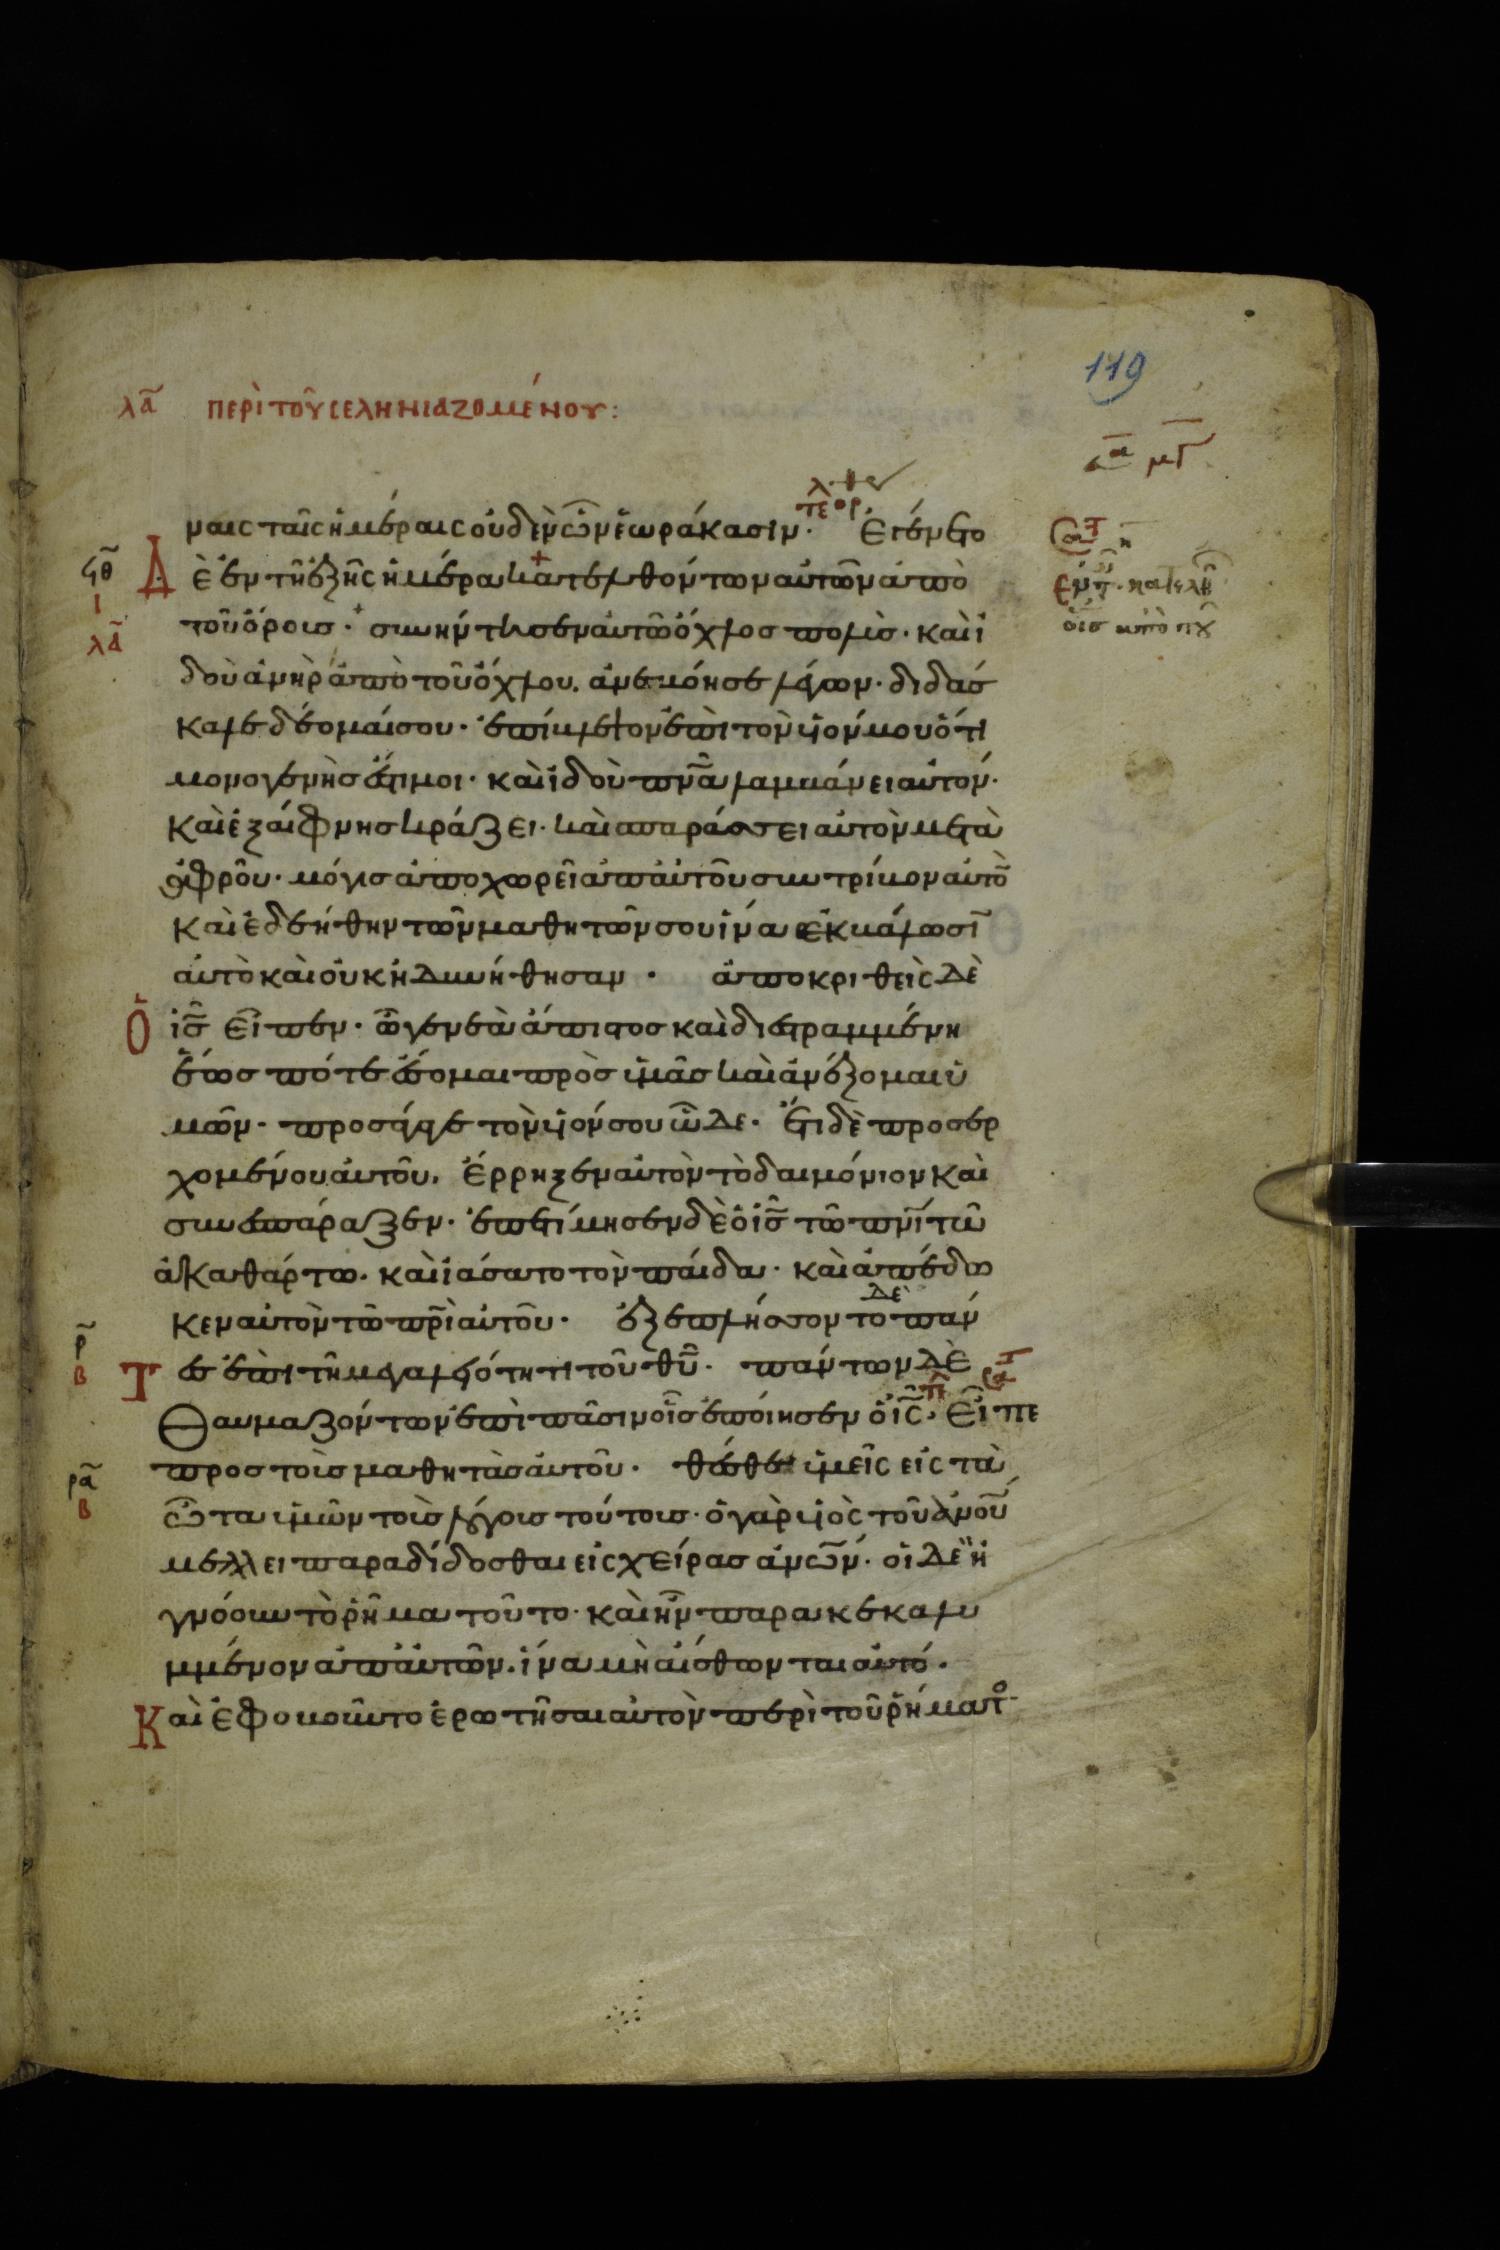 119
λα περὶ τοῦ σεληνιαζομένου:
ναις ταῖς ἡμέραις οὐδὲν ὧν ἑωράκασιν. Ἐγένετο
δὲ ἐν τῇ ἑξῆς ἡμέρα κατελθόντων αὐτῶν ἀπὸ
τοῦ ὄρους. συνήντησεν αὐτῶ ὄχλος πολὺς. καὶ ἰ
δοὺ ἀνὴρ ἀπὸ τοῦ ὄχλου. ἀνεβόησε λέγων. διδάσ
καλε δέομαί σου. ἐπίβλεψον ἐπὶ τὸν υἱόν μου ὅτι
μονογενὴς ἐστί μοι. καὶ ἰδοὺ πνα λαμβάνει αὐτόν.
καὶ ἐξαίφνης κράζει. καὶ σπαράσσει αὐτὸν μετὰ
ἀφροῦ. μόγις ἀποχωρεῖ ἀπ αὐτοῦ συντρίβον αὐτὸ
καὶ ἐδεήθην τῶν μαθητῶν σου ἵνα ἐκβάλωσι
αὐτὸ καὶ οὐκ ἠδυνήθησαν. ἀποκριθεὶς δὲ
ὁ ις εἶπεν. ὦ γενεὰ ἄπιστος καὶ διεστραμμένη
ἕως πότε ἔσομαι πρὸς ὑμᾶς καὶ ἀνέξομαι ὑ
μῶν. προσάγαγε τὸν υἱόν σου ὧδε. Ἔτι δὲ προσερ
χομένου αὐτοῦ, ἔρρηξεν αὐτὸν τὸ δαιμόνιον καὶ
συνεσπάραξεν. ἐπετίμησεν δὲ ὁ ις τῶ πνι τῶ
ἀκαθάρτω. καὶ ἰάσατο τὸν παῖδα. καὶ ἀπέδω
κεν αὐτὸν τῶ πρι αὐτοῦ. ἐξεπλήσσοντο δὲ πάν
τες ἐπὶ τῆ μεγαλειότητι τοῦ θυ. πάντων δὲ
θαυμαζόντων ἐπὶ πᾶσιν οἷς ἐποίησεν ὁ ις. εἶπε
προς τοὺς μαθητὰς αὐτοῦ. θέσθε ὑμεῖς εἰς τὰ
ὦτα ὑμῶν τοὺς λόγους τούτους. ὁ γὰρ υἱὸς τοῦ ανου
μέλλει παραδίδοσθαι εἰς χεῖρας ανων. οἱ δὲ ἠ
γνόουν τὸ ῥῆμα τοῦτο. καὶ ἦν παρακεκαλυ
μμένον ἀπ αὐτῶν. ἵνα μὴ αἴσθωνται αὐτό.
Καὶ ἐφοβοῦντο ἐρωτῆσαι αὐτὸν περὶ τοῦ ῥήματος